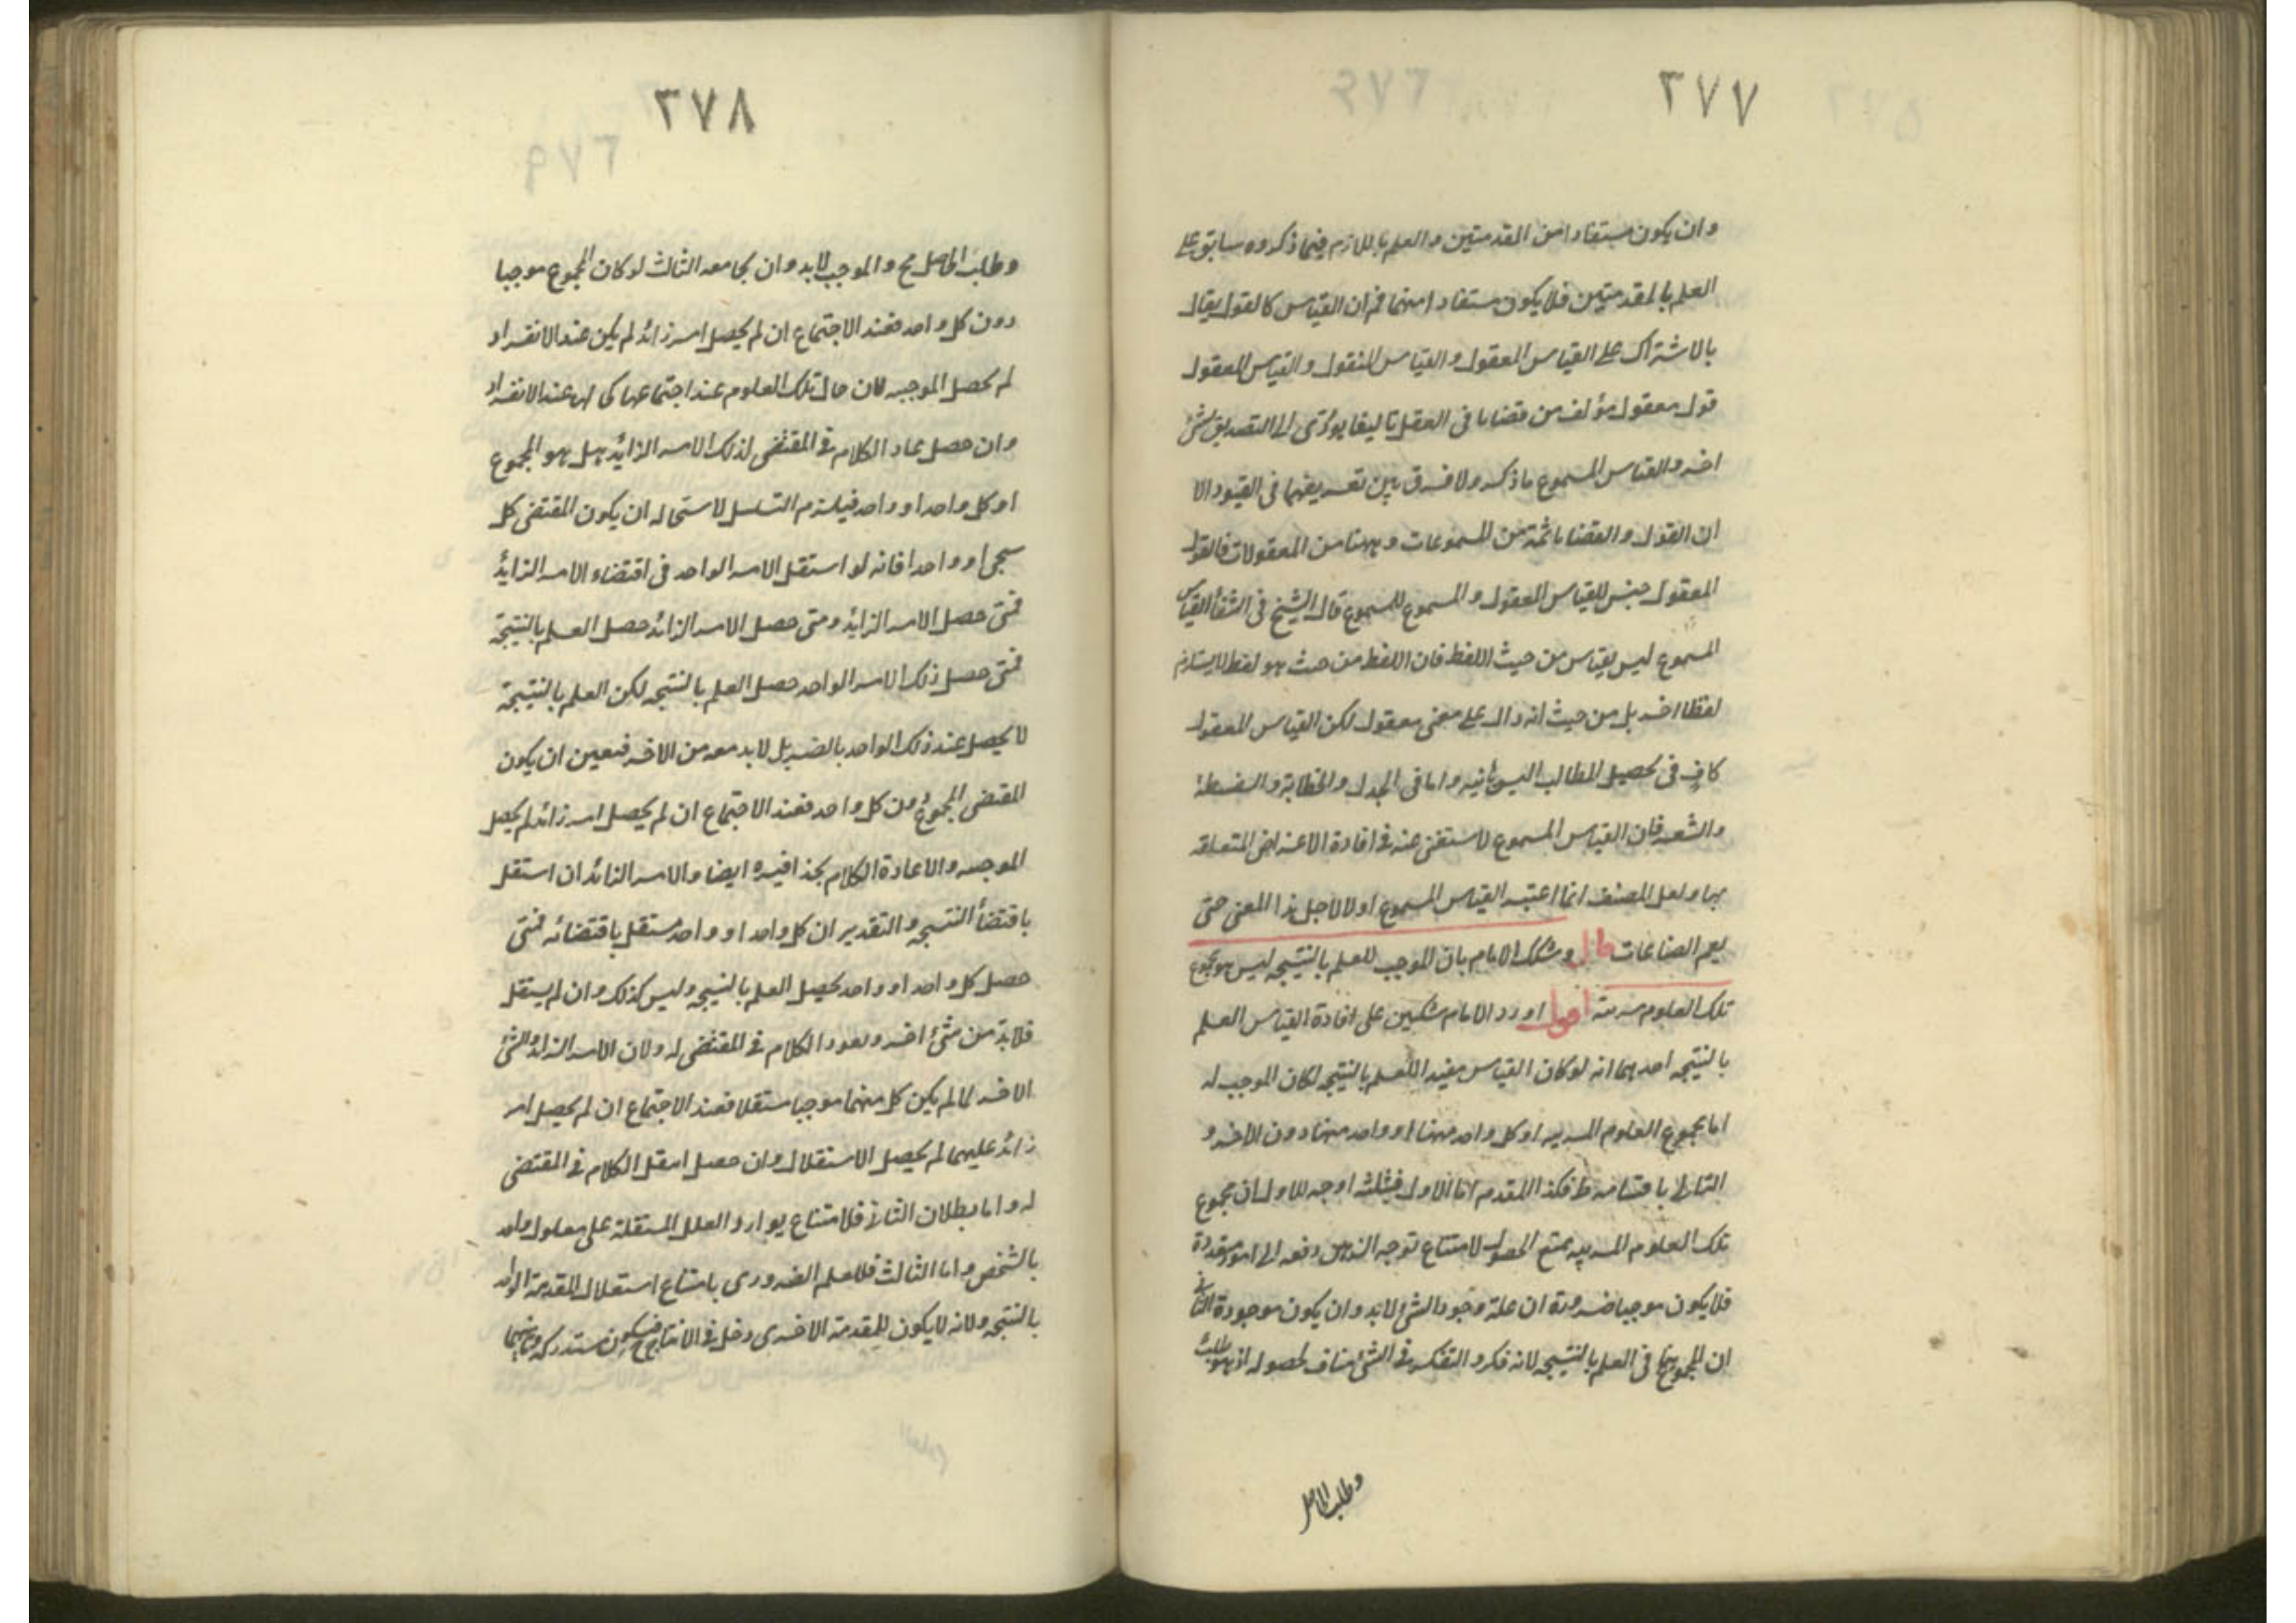 ٣٧٧
وان يكون مستفادا من المقدمتين والعلم باللازم فيما ذكروه سابق على
العلم بالمقدمتين فلا يكون مستفادا منهما ثم ان القياس كالقول يقال
بالاشتراك على القياس المعقول والقياس المنقول والقياس المعقول
قول معقول مؤلف من قضايا فى العقل تاليفا يؤدى الى التصديق بشئ
اخر والقياس المسموع ما ذكر ولا فرق بين تعريفهما فى القيود الا
ان القول والقضايا ثمة من المسموعات وههنا من المعقولات فالقول
المعقول جنس للقياس المعقول والمسموع للمسموع قال الشيخ فى الشفا القياس
المسموع ليس بقياس من حيث اللفظ فان اللفظ من حيث هو لفظ لا يستلزم
لفظا اخر بل من حيث انه دال على معنى معقول لكن القياس المعقول
كاف فى تحصيل المطالب البرهانيه واما فى الجدل والخطابة والسفسطة
والشعر فان القياس المسموع لا ستغنى عنه فى افادة الاغراض المتعلقه
بها ولعل المصنف انما اعتبر القياس المسموع اولا لاجل هذا المعنى حتى
يعم الصناعات قال وشكك الامام بان الموجب للعلم بالنتيجه ليس هو مجموع
تلك العلوم مرتبة اقول اورد الامام شكين على افادة القياس العلم
بالنتيجه احدهما انه لو كان القياس مفيدا للعلم بالنتيجه لكان الموجب له
اما مجموع العلوم المرتبه او كل واحد منها او واحد منها دون الاخر و
التالى باقسامه ظ فكذا المقدم اما الاول فيثلثه اوجه الاول ان مجموع
تلك العلوم المرتبه يمتنع الحصول لامتناع توجه الذهن دفعه الى امور متعددة
فلا يكون موجبا ضرورة ان علة وجود الشئ لا بد وان يكون موجودة الثانى
ان المجموع فى العلم بالنتيجه لانه فكر والتفكر فى الشئ مناف لحصوله اذ هو طلبه
وطلب الحاصل
٣٧٨
وطلب الحاصل مح والموجب لا بد وان يجامعه الثالث لو كان المجموع موجبا
دون كل واحد فعند الاجتماع ان لم يحصل امر زائد لم يكن عند الانفراد
لم يحصل الموجبه لان حال تلك العلوم عند اجتماعها كحالها عند الانفراد
وان حصل عاد الكلام فى المقتضى لذلك الامر الزايد هل هو المجموع
او كل واحد او واحد فيلزم التسلسل لاستحاله ان يكون المقتضى كل
واحد او واحدا فانه لو استقل الامر الواحد فى اقتضاء الامر الزايد
فمتى حصل الامر الزايد ومتى حصل الامر الزائد حصل العلم بالنتيجة
فمتى حصل ذلك الامر الواحد حصل العلم بالنتيجه لكن العلم بالنتيجة
لا يحصل عند ذلك الواحد بالضر بل لا بد معه من الاخر فتعين ان يكون
المقتضى المجموع دون كل واحد فعند الاجتماع ان لم يحصل امر زائد لم يحصل
الموجبه والا عادة الكلام بحذافيره ايضا والامر الزائد ان استقل
باقتضأ النتيجه والتقدير ان كل واحد او واحد مستقل باقتضائه فمتى
حصل كل واحد او واحد يحصل العلم بالنتيجه وليس كذلك وان لم يستقل
فلا بد من شئ اخر ويعود الكلام فى المقتضى له ولان الامر الزائد والشئ
الاخر لما لم يكن كل منهما موجبا مستقلا فعند الاجتماع ان لم يحصل امر
زائد عليهما لم يحصل الاستقلال وان حصل انتقل الكلام فى المقتضى
له واما بطلان الثانى فلامتناع توارد العلل المستقلة على معلول واحد
بالشخص واما الثالث فللعلم الضرورى بامتناع استقلال المقدمة الواحد
بالنتيجه ولانه لا يكون للمقدمة الاخرى دخل فى الانتاج فيكون مستدركه